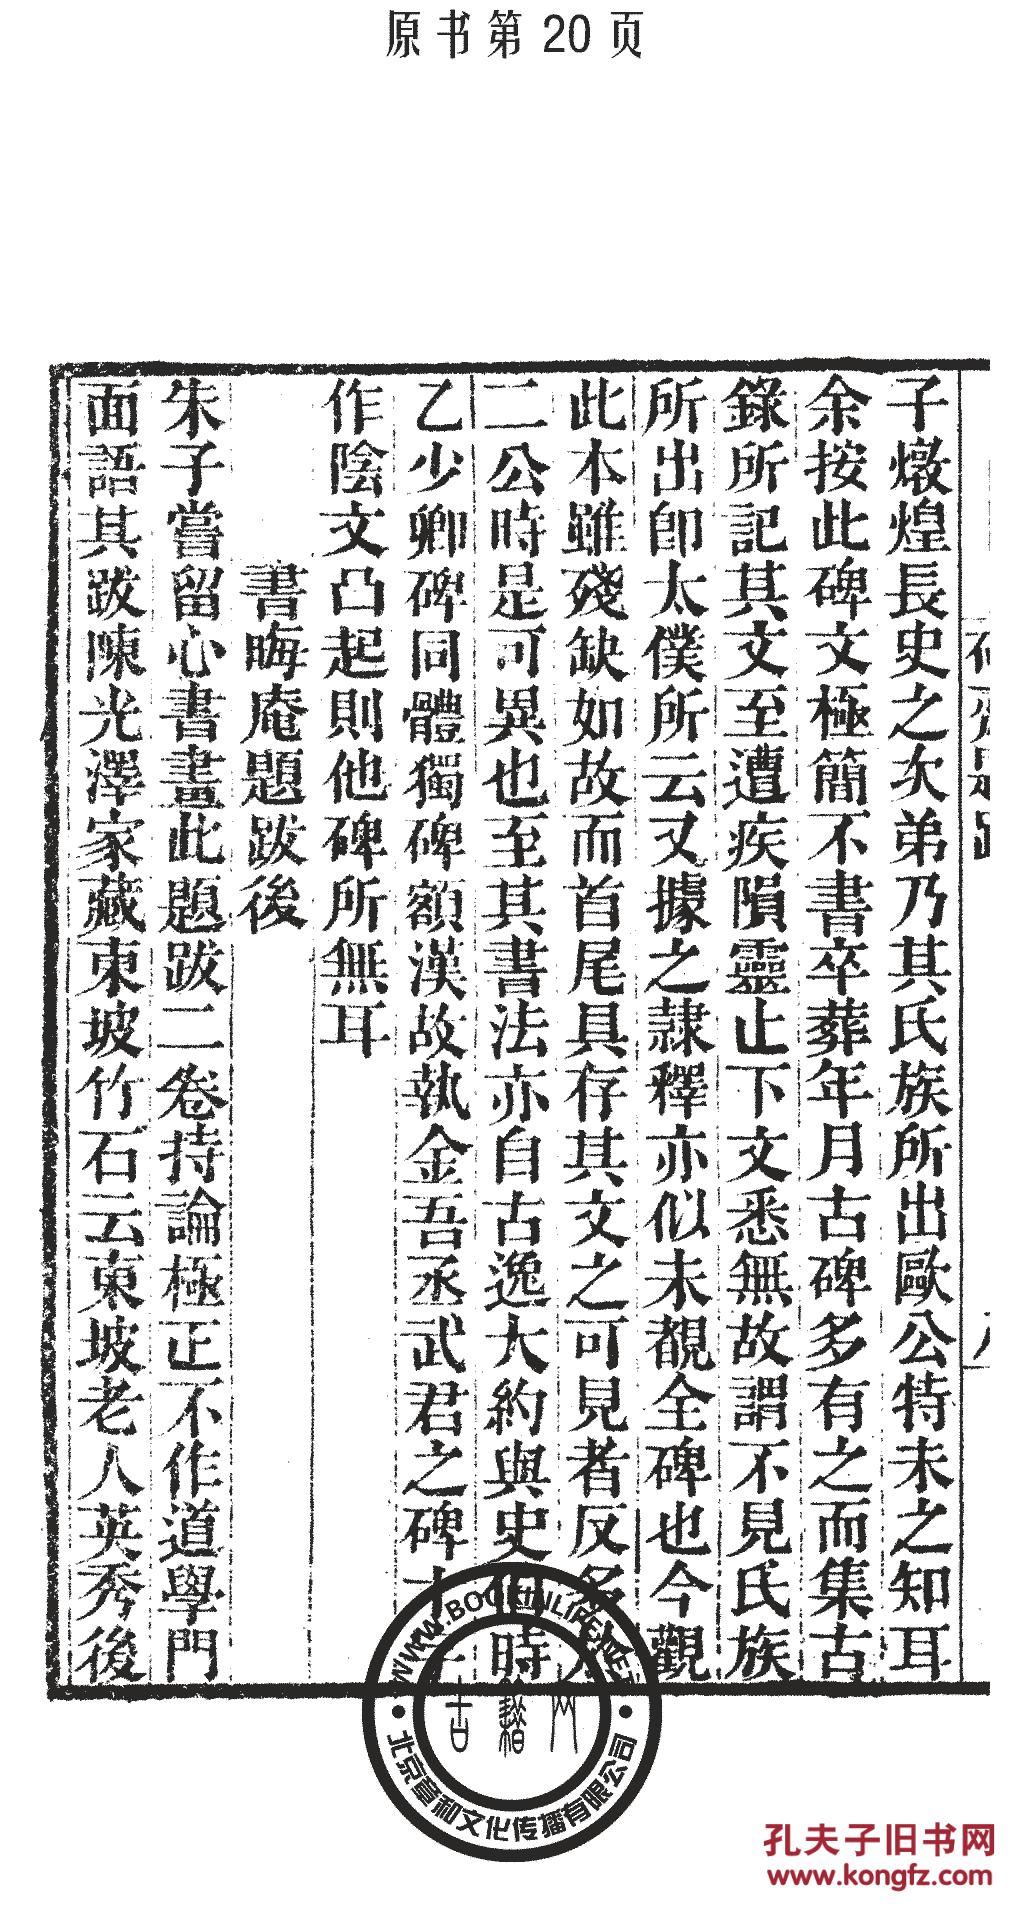 原书第20页
子燉煌長史之次弟乃其氏族所出歐公特未之知耳
余按此碑文極簡不書卒葬年月古碑多有之而集古
錄所記其文至遭疾隕靈止下文悉無故謂不見氏族
所出卽太僕所云又據之隷釋亦似未覩全碑也今觀
此本雖殘缺如故而首尾具存其文之可見者反多於
二公時是可異也至其書法亦自古逸大約與史㑹時
乙少卿碑同體獨碑額漢故執金吾丞武君之碑十
作陰文凸起則他碑所無耳
書晦庵題跋後
朱子嘗留心書畫此題跋二卷持論極正不作道學門
面語其跋陳光澤家藏東坡竹石云東坡老人英秀後
WWW.BOOKINLIFE.NET
古籍网
北京章和文化传播有限公司
孔夫子旧书网
www.kongfz.com